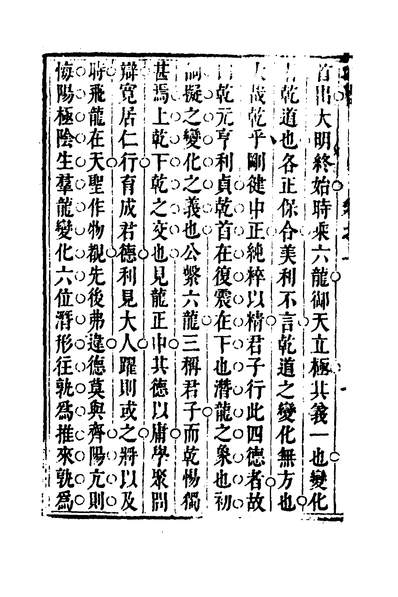 首出大明終始時乘六龍御天立極其義一也變化
乾道也各正保合美利不言乾道之變化無方也
大哉乾乎剛健中正純粹以精君子行此四德者故
乾元亨利貞乾首在復震在下也潛龍之象也初
擬之變化之義也公繫六龍三稱君子而乾惕獨
甚焉上乾下乾之交也見龍正中其德以庸學聚問
辯寬居仁行育成君德利見大人躍則或之將以及
時飛龍在天聖作物覩先後弗違德莫與齊陽亢則
悔陽極陰生羣龍變化六位潛形往孰爲推來孰爲